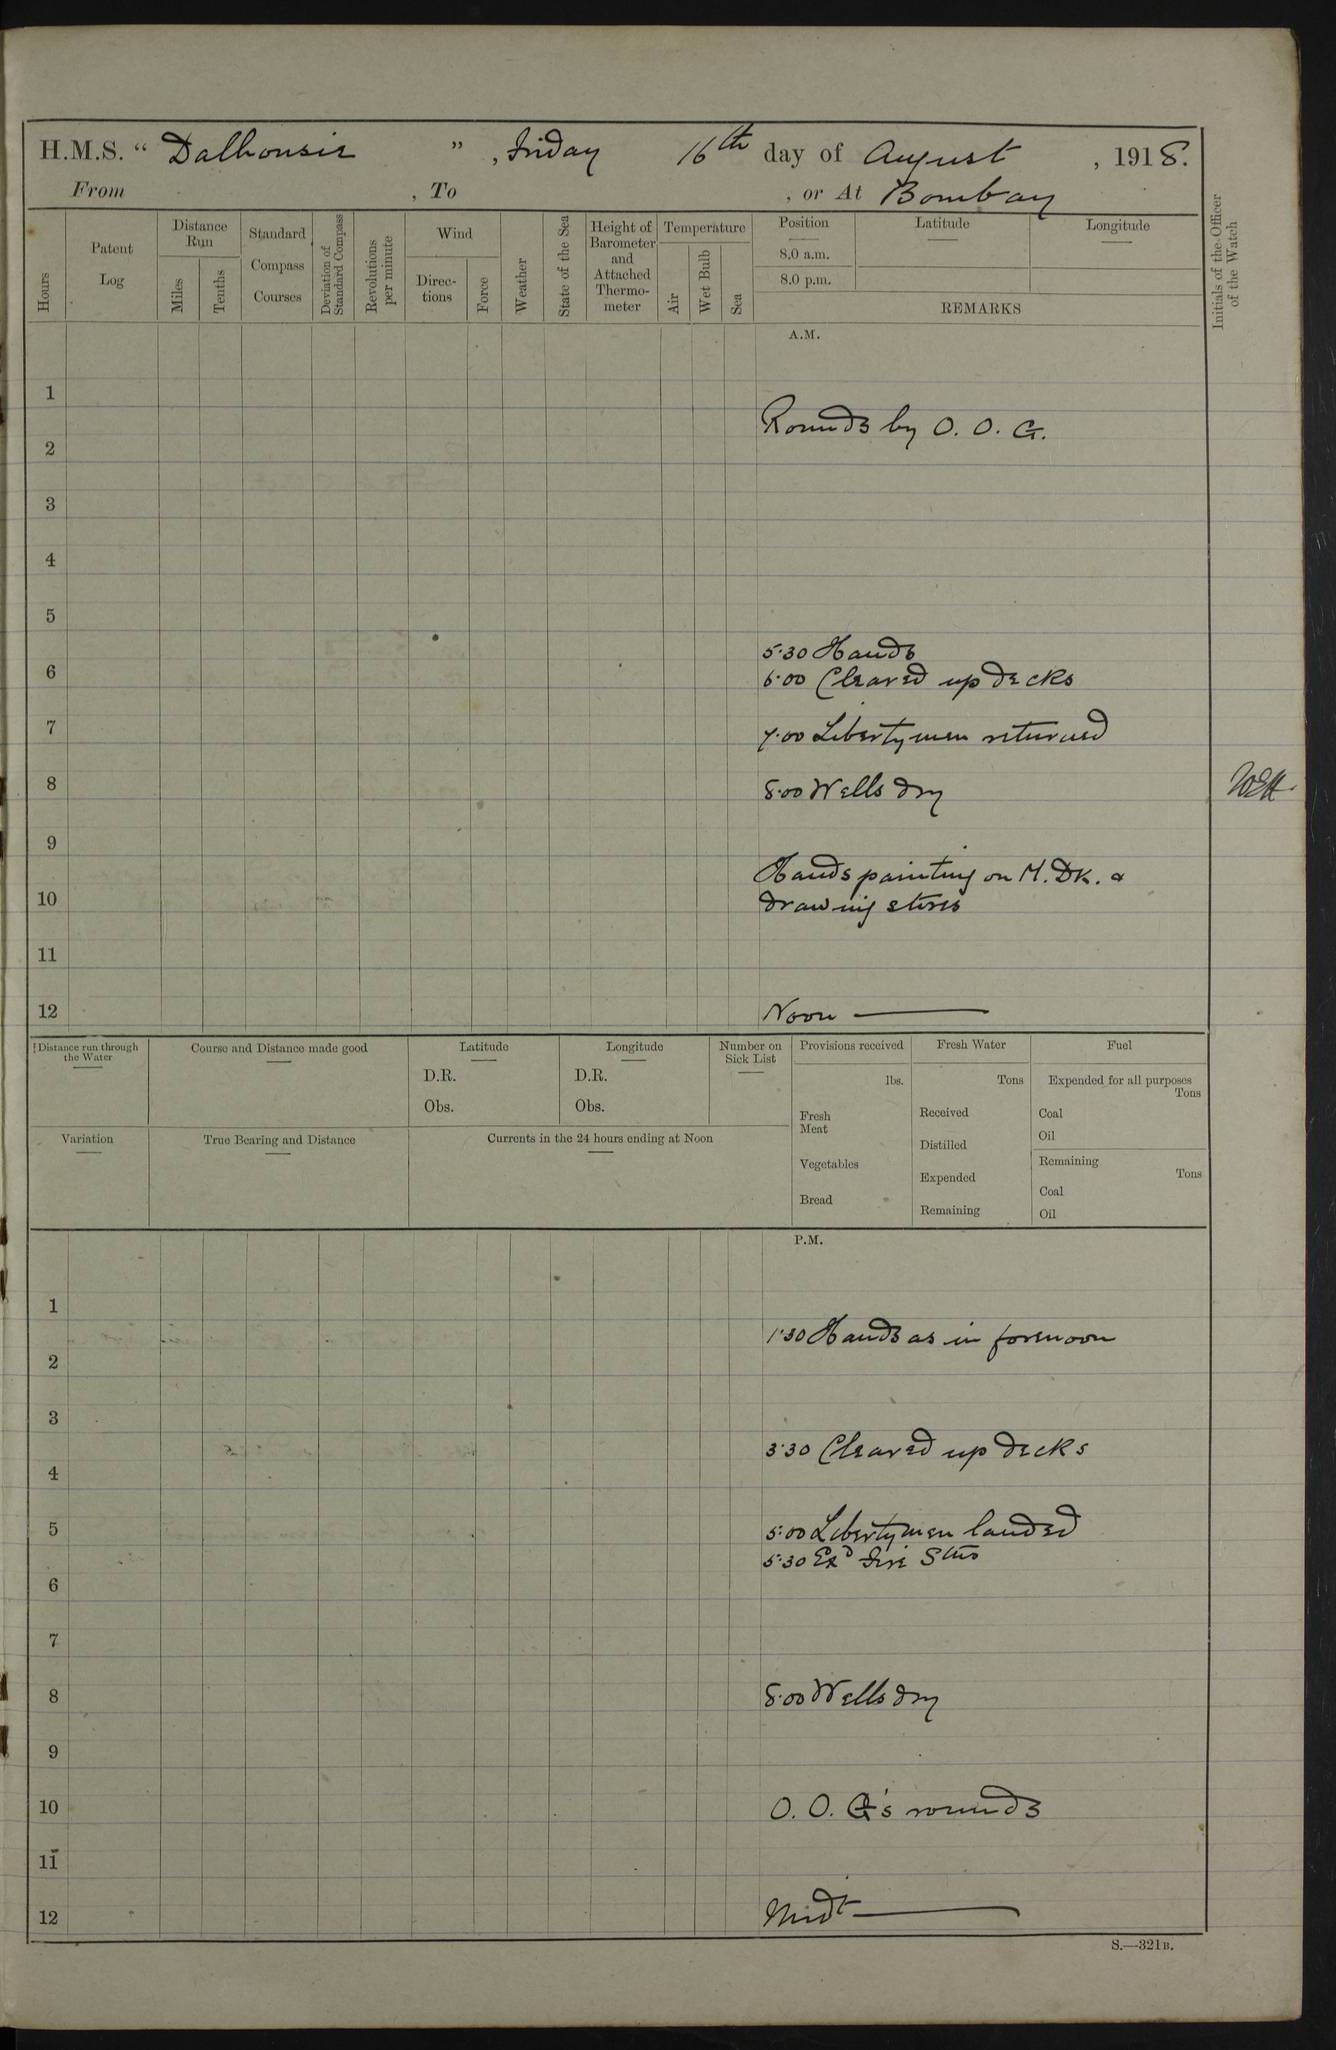 H.M.S. “ Dalhousie ” , Friday 16th day of August , 1918.
From , To , or At Bombay
Hours
Patent Log
Distance Run
Miles
Tenths
Standard Compass Courses
Deviation of Standard Compass
Revolutions per minute
Wind
Direc-tions
Force
Weather
State of the Sea
Height of Barometer and Attached Thermo-meter
Temperature
Air
Wet Bulb
Sea
Position
8.0 a.m.
8.0 p.m.
Latitude
Longitude
REMARKS
Initials of the Officer of the Watch
A.M.
1
Rounds by O. O. G.
2
3
4
5
5.30 Hands
6
6.00 Cleared up decks
7
7.00 Libertymen returned
8
8.00 Wells dry
9
Hands painting on M. Dk. &
10
drawing stores
11
12
Noon
Distance run through the Water
Course and Distance made good
Latitude
D.R.
Obs.
Longitude
D.R.
Obs.
Number on Sick List
Provisions received
lbs.
Fresh Meat
Vegetables
Bread
Fresh Water
Tons
Received
Distilled
Expended
Remaining
Fuel
Expended for all purposes
Tons
Coal
Oil
Remaining
Tons
Coal
Oil
Variation
True Bearing and Distance
Currents in the 24 hours ending at Noon
P.M.
1
1.30 Hands as in forenoon
2
3
3.30 Cleared up decks
4
5
5.00 Libertymen landed
5.30 Exd Fire Stns
6
7
8
8.00 Wells dry
9
10
O. O. G's rounds
11
12
Midt
S.—321B.